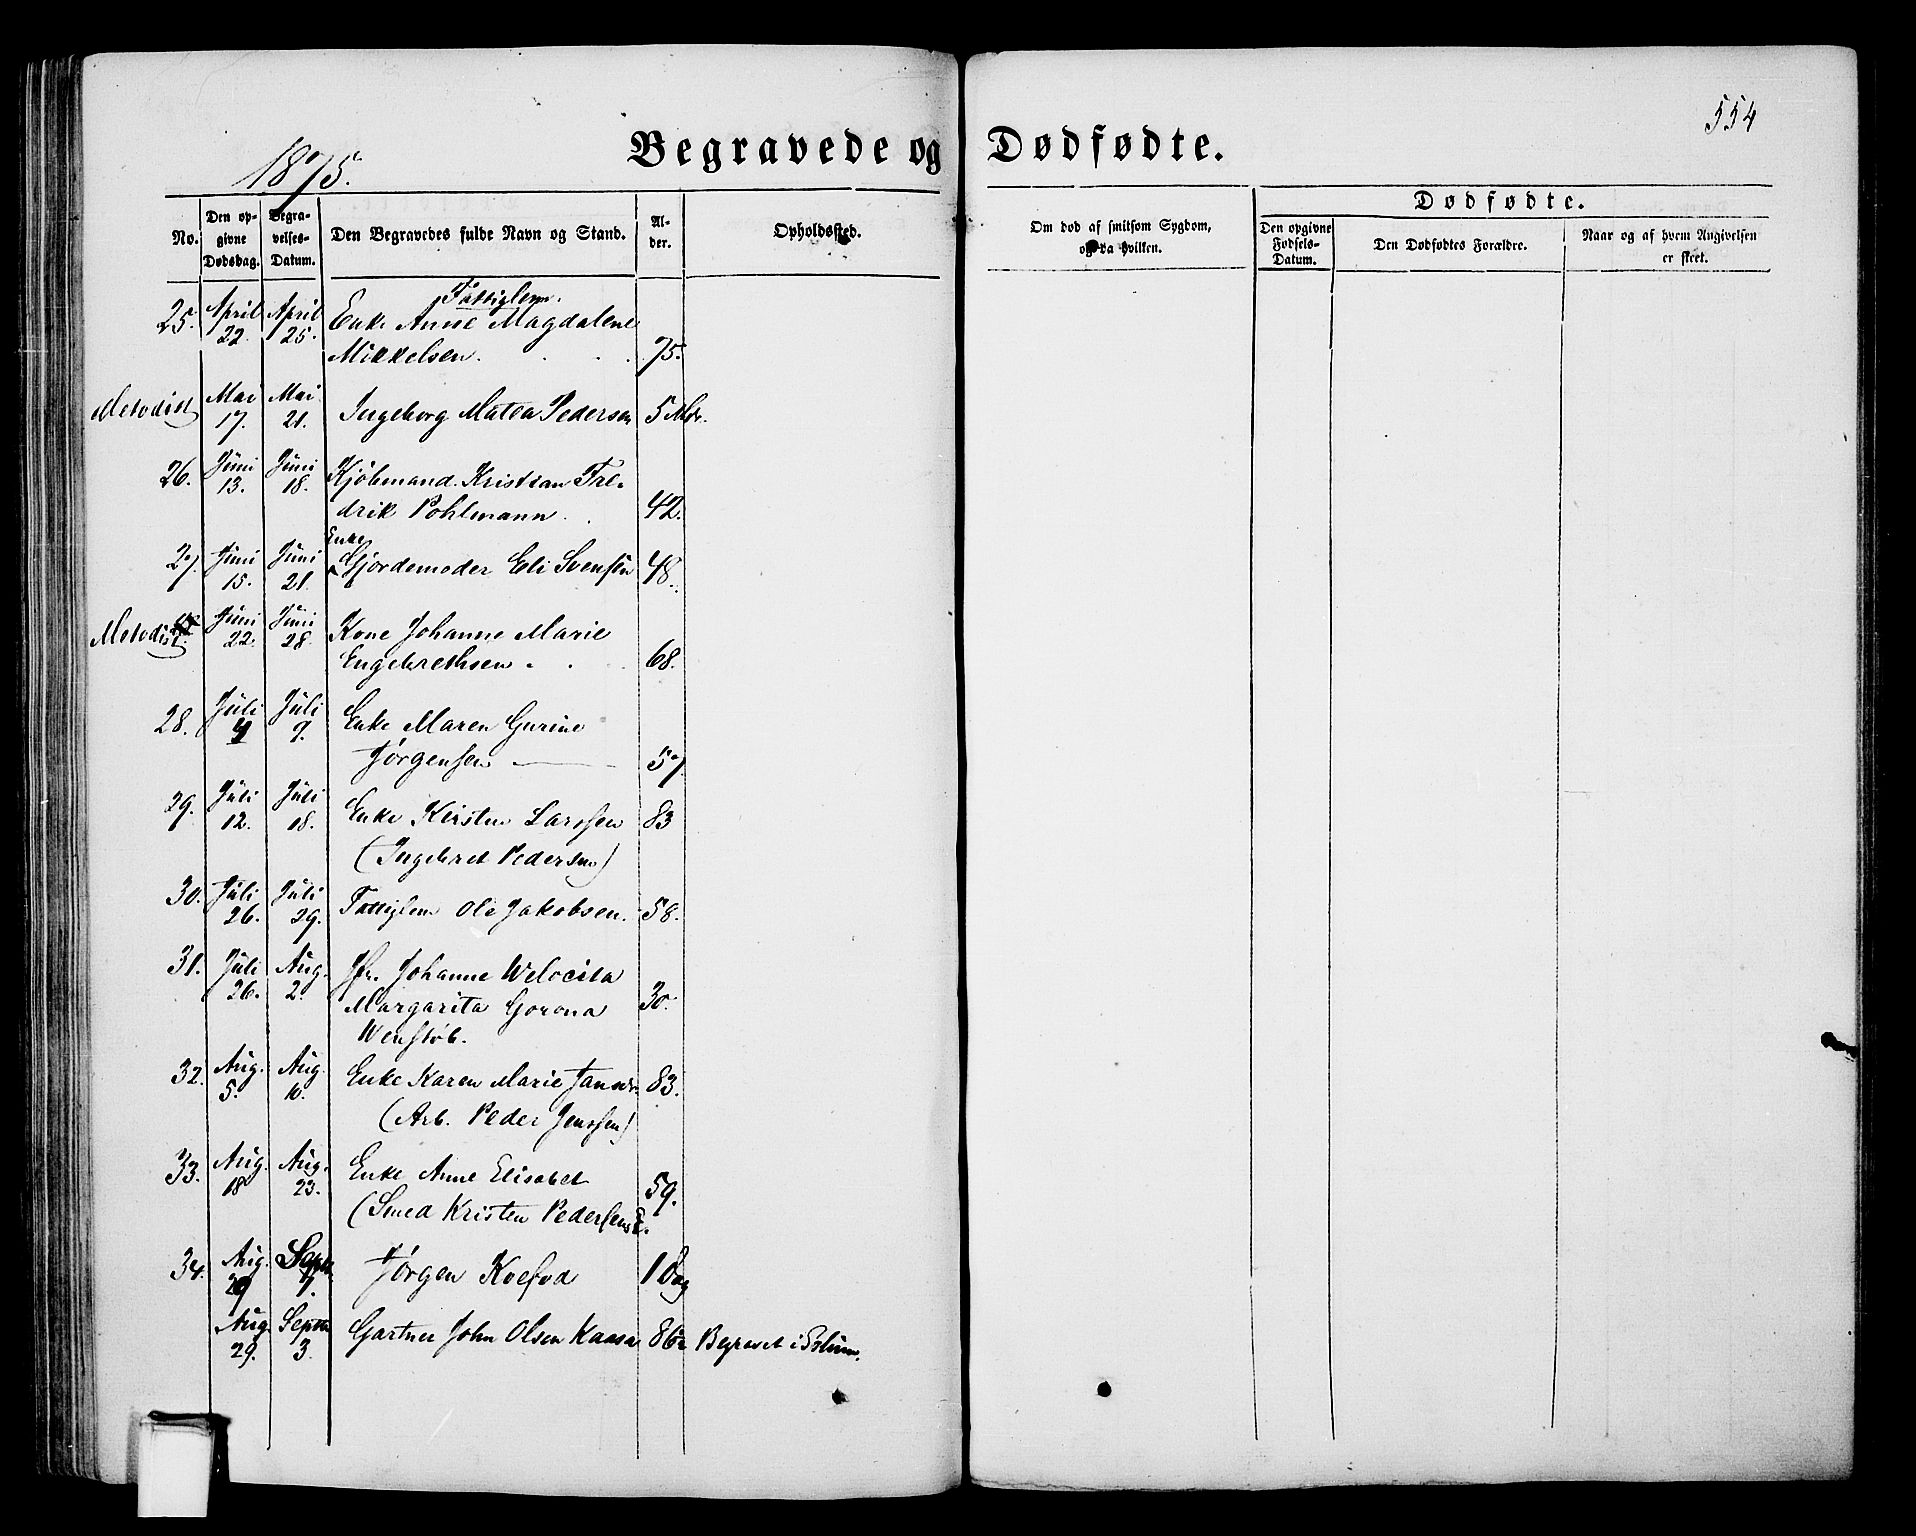 554
1875.
Begravede og Dødfødte.
No.
Den op-
givne
Dødsdag.
Begra-
velses-
Datum.
Den Begravedes fulde Navn og Stand.
Al-
der.
Opholdssted.
Om død af smitsom Sygdom,
og da hvilken.
Dødfødte.
Den opgivne
Fødsels-
Datum.
Den Dødfødtes Forældre.
Naar og af hvem Angivelsen
er skeet.
Fattiglem.
25. April 22. April 25. Enke Anne Magdalene
Mikkelsen. 75.
Metodist Mai 17. Mai 21. Ingeborg Matea Pedersen 5 Mdr.
26. Juni 13. Juni 18. Kjöbmand Kristian Fre-
drik Pohlmann. 42.
Enke
27. Juni 15. Juni 21. Gjordemoder Eli Svensen 48.
Metodist. Juni 22. Juni 28. Kone Johanne Marie
Engebrethsen. 68.
28. Juli 4 Juli 9. Enke Maren Gurine
Jørgensen 57.
29. Juli 12. Juli 18. Enke Kirsten Larssen 83
(Ingebret Pedersen)
30. Juli 26. Juli 29. Fattiglem Ole Jakobsen. 58.
31. Juli 26. Aug. 2. Jfr. Johanne Welocita
Margarita Gorona 30.
Wenstøb.
32. Aug. 5. Aug. 10. Enke Karen Marie 83.
(Arb. Peder Jenssen)
33. Aug. 18 Aug. 23. Enke Anne Elisabet
(Smed Kristen Pedersens E. 59.
34. Aug. Septr. Jørgen Koefod 1 Dag
Aug. 29. Septr. 3. Gartner John Olsen Kaasa 86 Begravet i Solum.